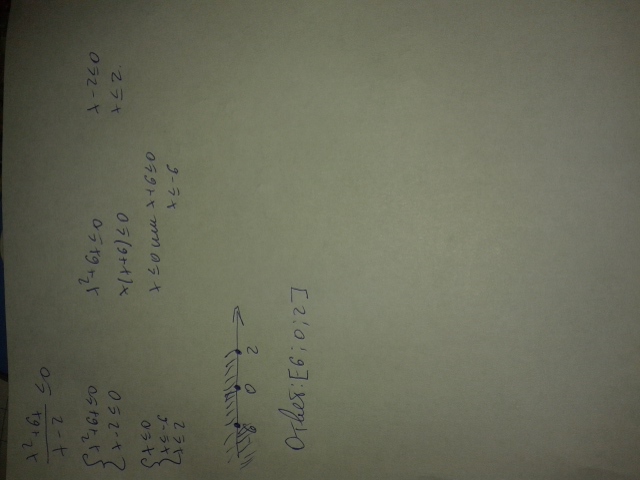 x²+6x / x-2 ≤0
{ x²+6x≤0
x-2≤0
x²+6x≤0
x(x+6)≤0
x≤0 или x+6≤0
x≤-6
x-2≤0
x≤2
{ x≤0
x≤-6
x≤2
-6 0 2
Ответ: [6;0;2]